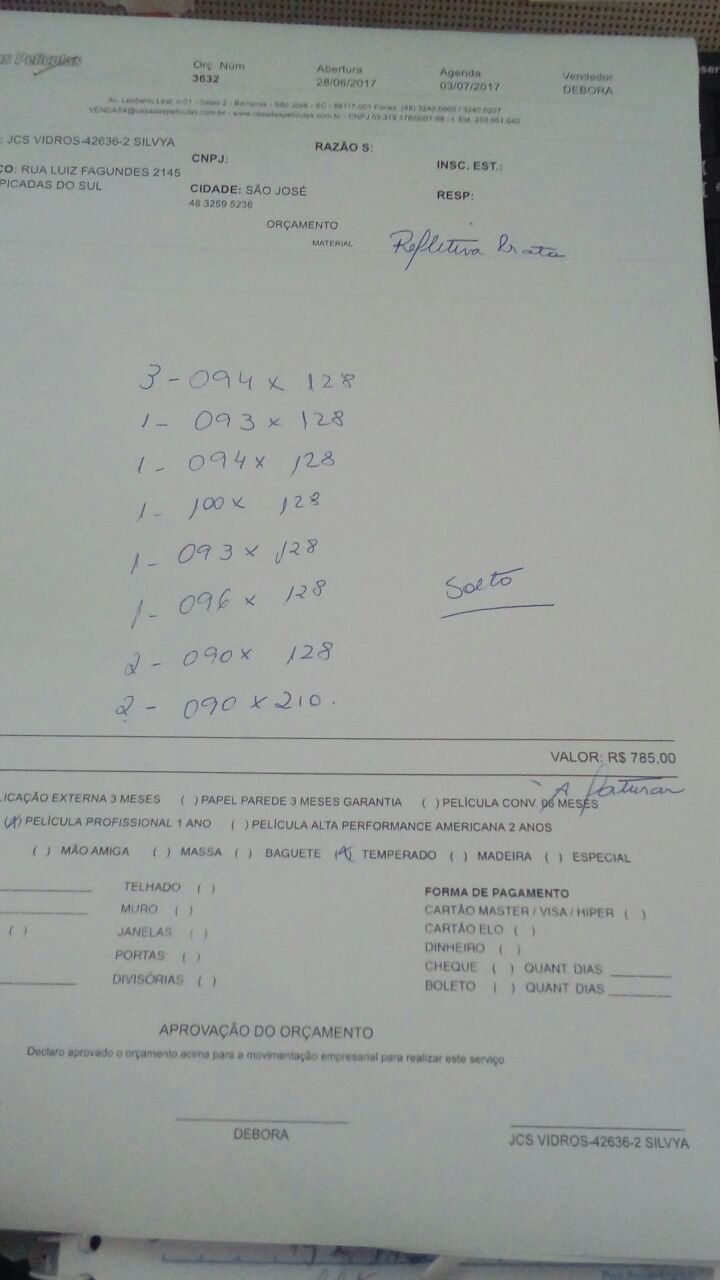 s Películas
Orç Num Abertura Agenda Vendedor
3632 28/06/2017 03/07/2017 DEBORA
Av. Leoberto Leal, n.01 - Salas 2 - Barreiros - São José - SC - 88117-001 Fones: (48) 3240.0665 / 3240.0207
: JCS VIDROS-42636-2 SILVYA
CNPJ: RAZÃO S: INSC. EST.:
ÇO: RUA LUIZ FAGUNDES 2145
PICADAS DO SUL
CIDADE: SÃO JOSÉ RESP:
48 3259 5236
ORÇAMENTO
MATERIAL Refletiva Prata
3 - 094 x 128
1 - 093 x 128
1 - 094 x 128
1 - 100 x 128
1 - 093 x 128
1 - 096 x 128
Solto
2 - 090 x 128
2 - 090 x 210.
VALOR: R$ 785,00
A faturar
LICAÇÃO EXTERNA 3 MESES ( ) PAPEL PAREDE 3 MESES GARANTIA ( ) PELÍCULA CONV. 06 MESES
(X) PELÍCULA PROFISSIONAL 1 ANO ( ) PELÍCULA ALTA PERFORMANCE AMERICANA 2 ANOS
( ) MÃO AMIGA ( ) MASSA ( ) BAGUETE (X) TEMPERADO ( ) MADEIRA ( ) ESPECIAL
TELHADO ( )
MURO ( )
( ) JANELAS ( )
PORTAS ( )
DIVISÓRIAS ( )
FORMA DE PAGAMENTO
CARTÃO MASTER / VISA / HIPER ( )
CARTÃO ELO ( )
DINHEIRO ( )
CHEQUE ( ) QUANT. DIAS
BOLETO ( ) QUANT. DIAS
APROVAÇÃO DO ORÇAMENTO
Declaro aprovado o orçamento acima para a movimentação empresarial para realizar este serviço
DEBORA JCS VIDROS-42636-2 SILVYA